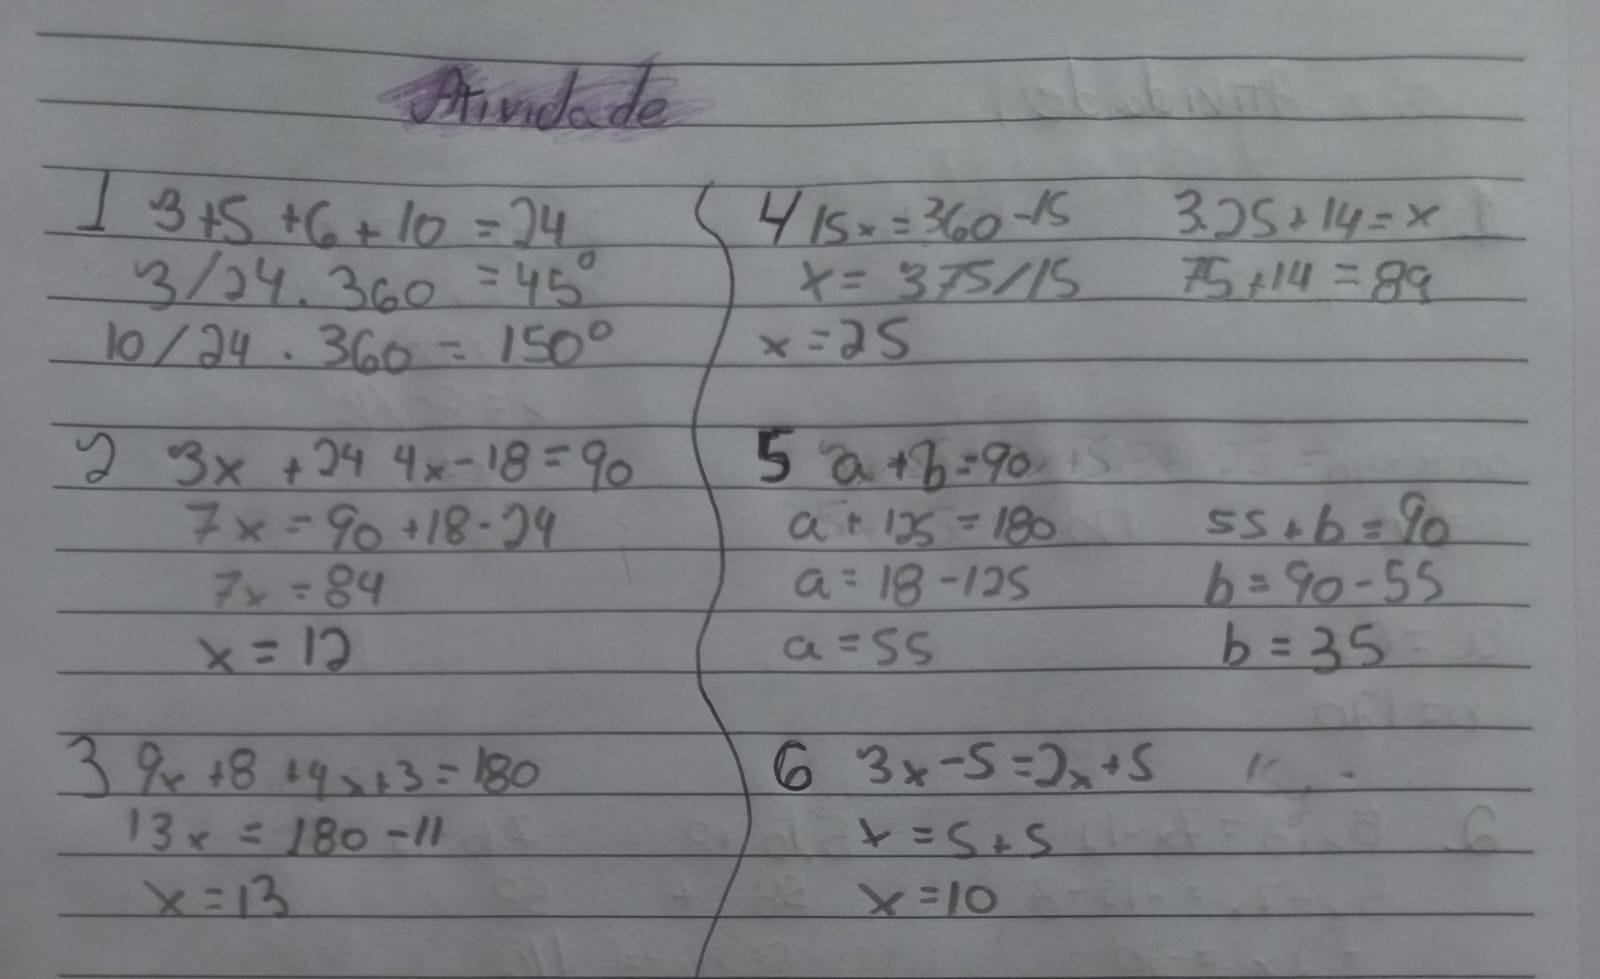 Atividade
1 3+5+6+10=24
3/24.360=45°
10/24.360=150°
2 3x+24 4x-18=90
7x=90+18-24
7x=84
x=12
3 9x+8+4x+3=180
13x=180-11
x=13
4 15x=360-15
x=375/15
x=25
3.25+14=x
75+14=89
5 a+b=90
a+125=180
a=18-125
a=55
55+b=90
b=90-55
b=35
6 3x-5=2x+5
x=5+5
x=10